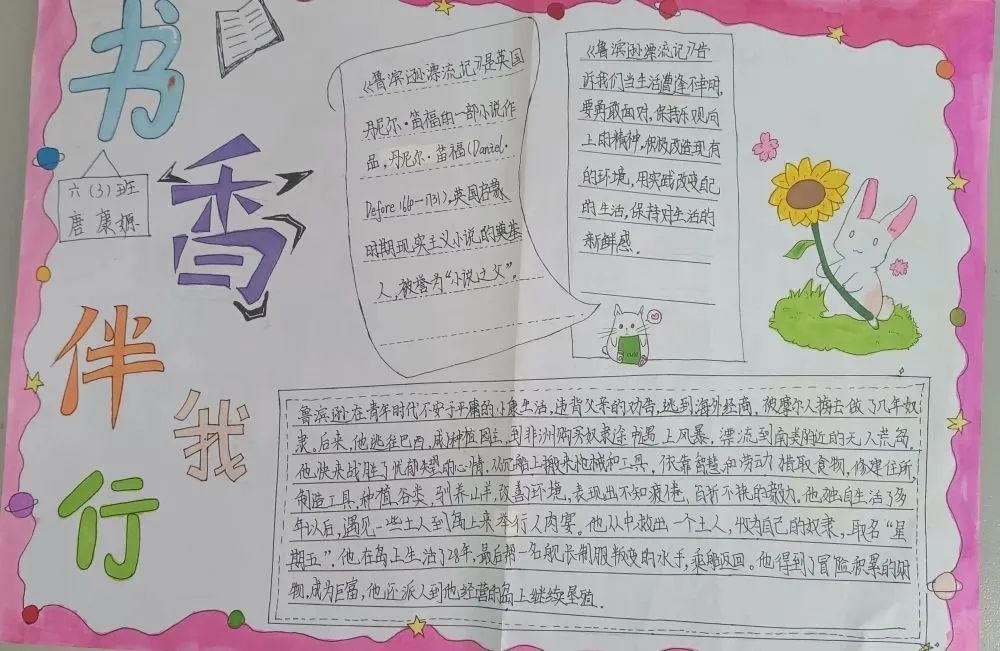 书
香
伴
我
行
六（3）班
唐康
《鲁滨逊漂流记》是英国
丹尼尔·笛福的一部小说作
品，丹尼尔·笛福（Daniel·
Defore 1660－1731），英国启蒙
时期现实主义小说的奠基
人，被誉为“小说之父”。
《鲁滨逊漂流记》告
诉我们当生活遭逢不幸时，
要勇敢面对，保持乐观向
上的精神，积极改造现有
的环境，用实践改变自己
的生活，保持对生活的
新鲜感。
鲁滨逊在青年时代不安于平庸的小康生活，违背父亲的劝告，逃到海外经商，被摩尔人掳去做了几年奴
隶。后来，他逃往巴西，成种植园主，到非洲购买奴隶途中遇上风暴，漂流到南美附近的无人荒岛。
他快来战胜了忧郁失望的心情，从沉船上搬来枪械和工具，依靠智慧和劳动措取食物，修建住所，
制造工具，种植谷类，驯养山羊，改善环境，表现出不知疲倦，百折不挠的毅力，他独自生活了多
年以后，遇见一些土人到岛上来举行人肉宴。他从中救出一个土人，收为自己的奴隶，取名“星
期五”。他在岛上生活了28年，最后帮一名舰长制服叛变的水手，乘船返回。他得到了冒险积累的财
物，成为巨富，他还派人到他经营的岛上继续垦殖．